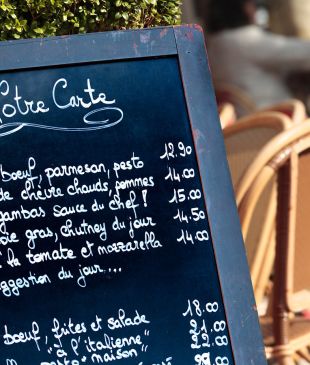 otre Carte
boeuf, parmesan, pesto 12.90
de chèvre chauds, pommes 14.00
gambas sauce du chef ! 15.00
oie gras, chutney du jour 14.50
la tomate et mozzarella 14.00
ggestion du jour...
boeuf, frites et salade 18.00
"à l'italienne" 21.00
"maison" 22.00